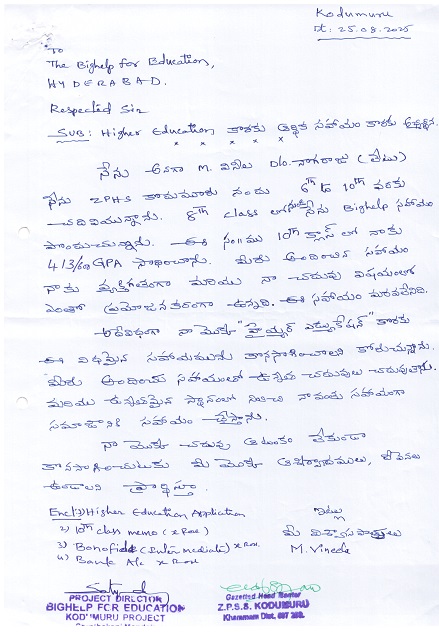 Kodumuru
Dt: 25.08.2025
To
The Bighelp for Education,
HYDERABAD.
Respected Sir
SUB: Higher Education కొరకు ఆర్థిక సహాయం కొరకు అభ్యర్థన.
x x x x x
నేను అనగా M. వినీల D/o. నాగరాజు (లేటు)
నేను ZPHS కొడుమూరు నందు 6th to 10th వరకు
చదివియున్నాను. 8th class లో నుండి నేను Bighelp సహాయం
పొందుచున్నాను. ఈ సం॥ము 10th క్లాస్ లో నాకు
GPA సాధించాను. మీరు అందించిన సహాయం
నాకు మరియు నా చదువు విషయంలో
ఎంతో ప్రయోజనకరంగా ఉన్నది. ఈ సహాయం మరువలేనిది.
అదేవిధంగా నా యొక్క "హైయ్యర్ ఎడ్యుకేషన్" కొరకు
ఈ విధమైన సహాయమును కొనసాగించాలని కోరుచున్నాను.
మీరు అందించు సహాయంతో ఉన్నత చదువులు చదువుతాను.
మరియు ఉన్నతమైన స్థానంలో నిలిచి నావంతు సహాయంగా
సమాజానికి సహాయం చేస్తాను.
నా యొక్క చదువు ఆటంకం లేకుండా
కొనసాగించుటకు మీ యొక్క ఆశీర్వాదములు, దీవెనలు
ఉండాలని ప్రార్థిస్తూ.
Encl: 1) Higher Education Application
2) 10th class memo (x Rox)
3) Bonofide (Inter mediate) x Rox
4) Bank A/c x Rox
ఇట్లు
మీ విశ్వాసపాత్రులు
M. Vineela
PROJECT DIRECTOR
BIGHELP FOR EDUCATION
KODUMURU PROJECT
Gazetted Head Master
Z.P.S.S. KODUMURU
Khammam Dist.